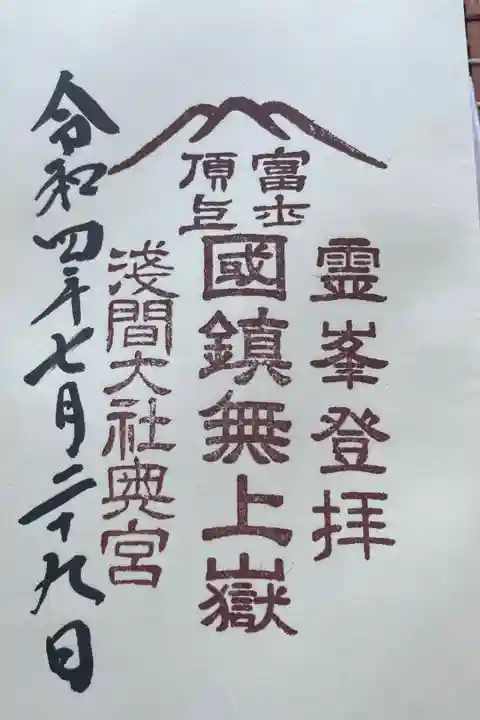 富士
頂上
霊峯登拝
國鎮無上嶽
淺間大社奥宮
令和四年七月二十九日